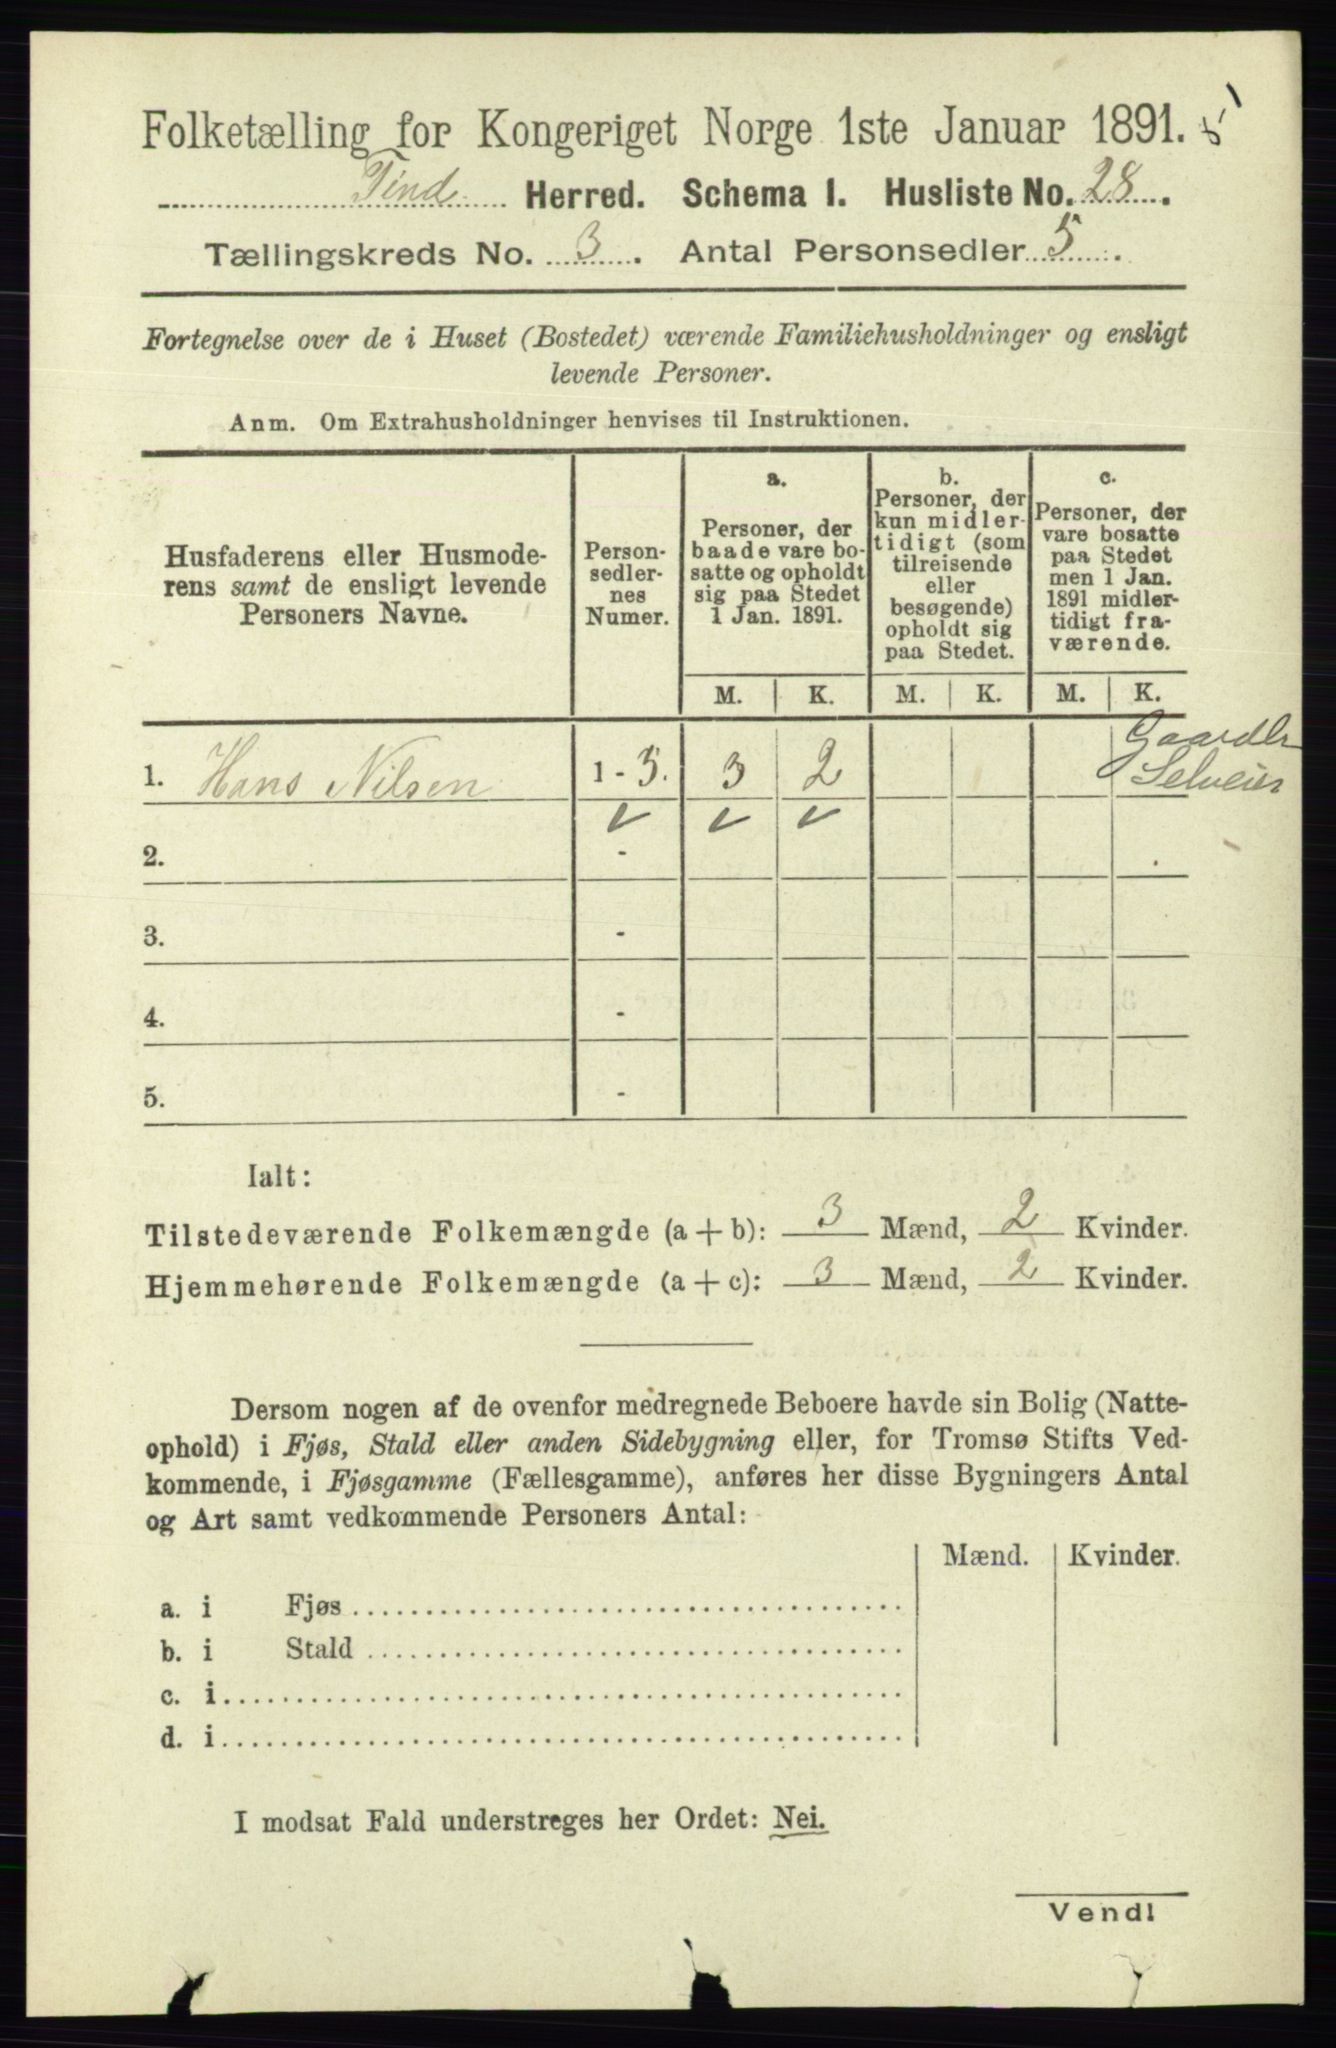 Folketælling for Kongeriget Norge 1ste Januar 1891.
Tind Herred. Schema I. Husliste No. 28.
Tællingskreds No. 3. Antal Personsedler 5.
Fortegnelse over de i Huset (Bostedet) værende Familiehusholdninger og ensligt
levende Personer.
Anm. Om Extrahusholdninger henvises til Instruktionen.
Husfaderens eller Husmode-
rens samt de ensligt levende
Personers Navne.
Person-
sedler-
nes
Numer.
a.
Personer, der
baade vare bo-
satte og opholdt
sig paa Stedet
1 Jan. 1891.
b.
Personer, der
kun midler-
tidigt (som
tilreisende
eller
besøgende)
opholdt sig
paa Stedet.
c.
Personer, der
vare bosatte
paa Stedet
men 1 Jan.
1891 midler-
tidigt fra-
værende.
M. K. M. K. M. K.
1. Hans Nilsen 1 - 5. 3 2
Gaardbr
Selveier
2. -
3. -
4. -
5. -
Ialt:
Tilstedeværende Folkemængde (a + b): 3 Mænd, 2 Kvinder.
Hjemmehørende Folkemængde (a + c): 3 Mænd, 2 Kvinder.
Dersom nogen af de ovenfor medregnede Beboere havde sin Bolig (Natte-
ophold) i Fjøs, Stald eller anden Sidebygning eller, for Tromsø Stifts Ved-
kommende, i Fjøsgamme (Fællesgamme), anføres her disse Bygningers Antal
og Art samt vedkommende Personers Antal:
Mænd. Kvinder.
a. i Fjøs
b. i Stald
c. i
d. i
I modsat Fald understreges her Ordet: Nei.
Vend!